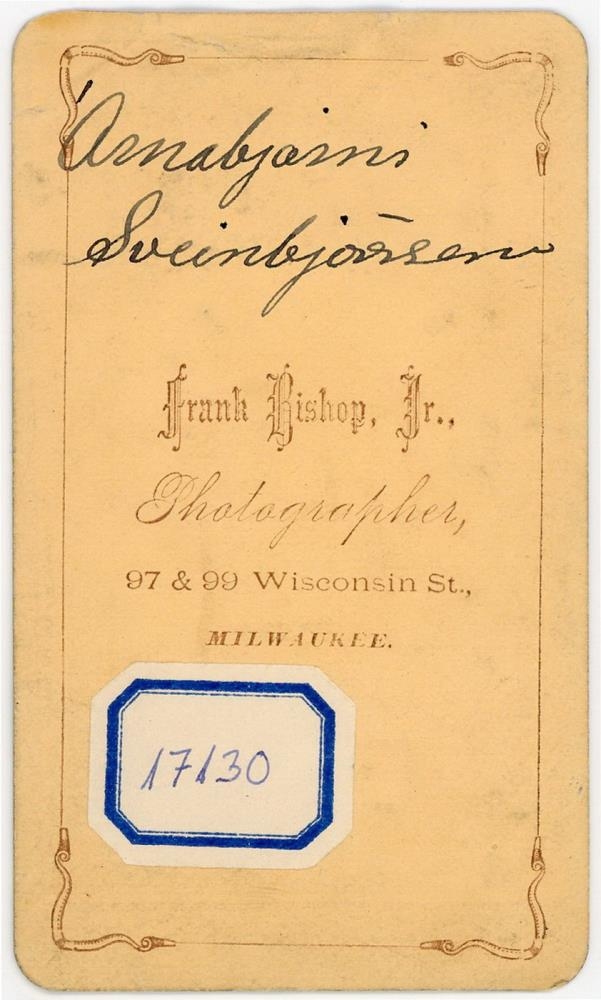 Árnabjarni
Sveinbjörssen
Frank Bishop, Jr.,
Photographer,
97 & 99 Wisconsin St.,
MILWAUKEE.
17130